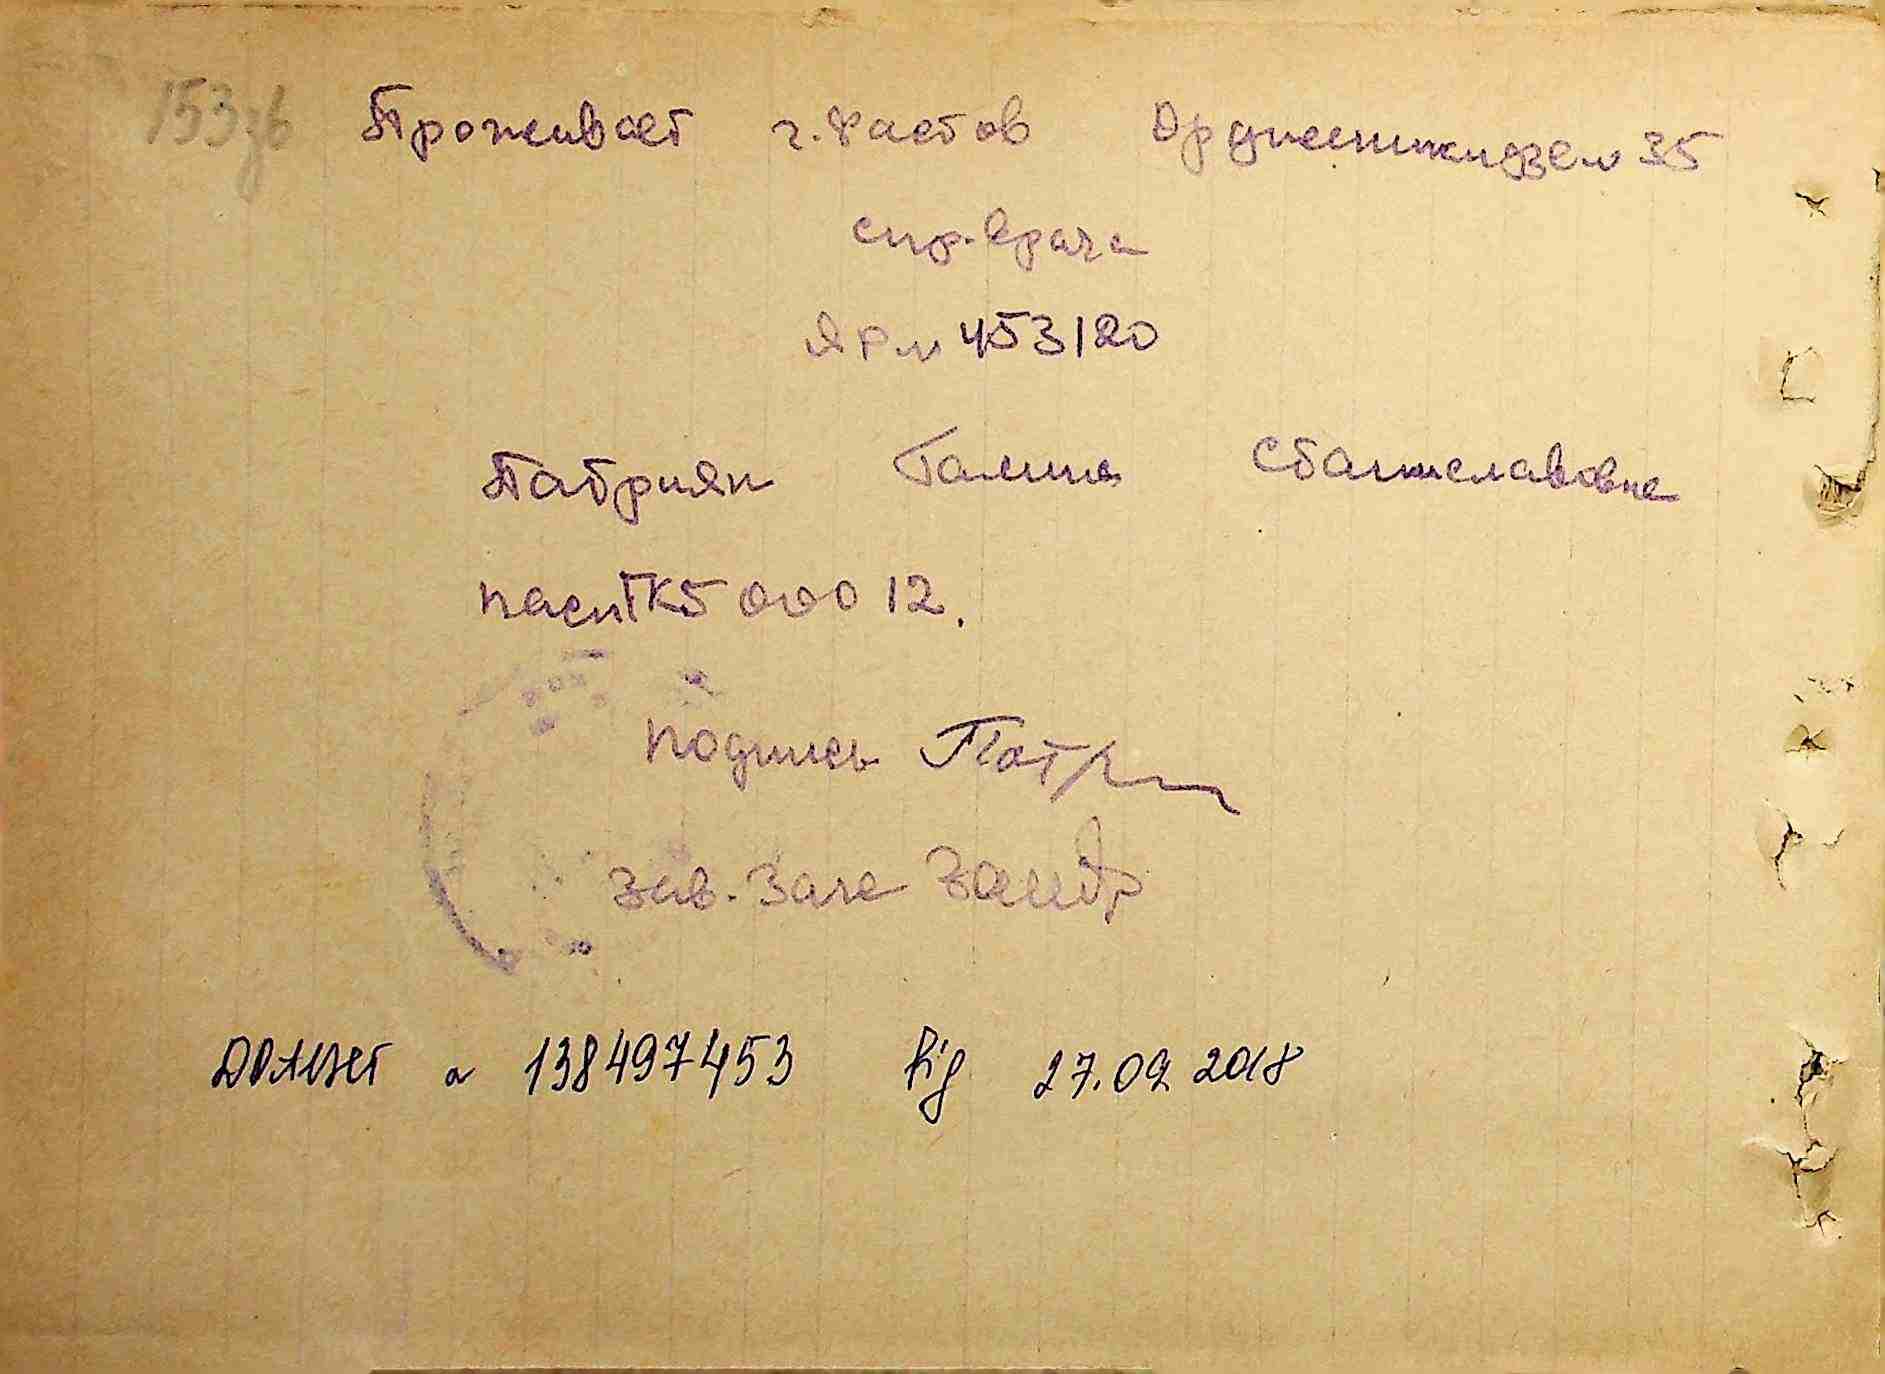 153зв Проживает г. Фастов Орджоникидзе № 35
спр. врача
ЯР № 453120
Патриян Галина Станиславовна
пасп ТК 500012.
подпись Патр
Зав. Загс
ДОДАЄТ № 138497453 від 27.09.2018